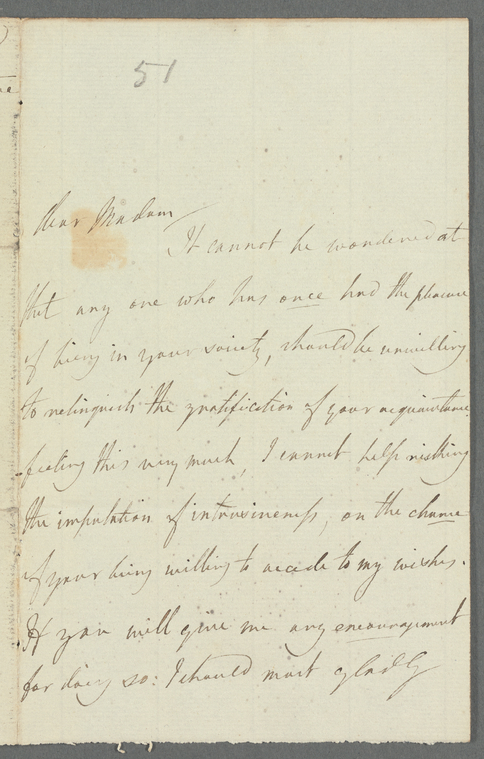 51
Dear Madam
It cannot be wondered at
that any one who has once had the pleasure
of being in your society, should be unwilling
to relinquish the gratification of your acquaintance.
feeling this very much, I cannot help risking
the imputation of intrusiveness, on the chance
of your being willing to accede to my wishes.
If you will give me any encouragement
for doing so: I should most gladly